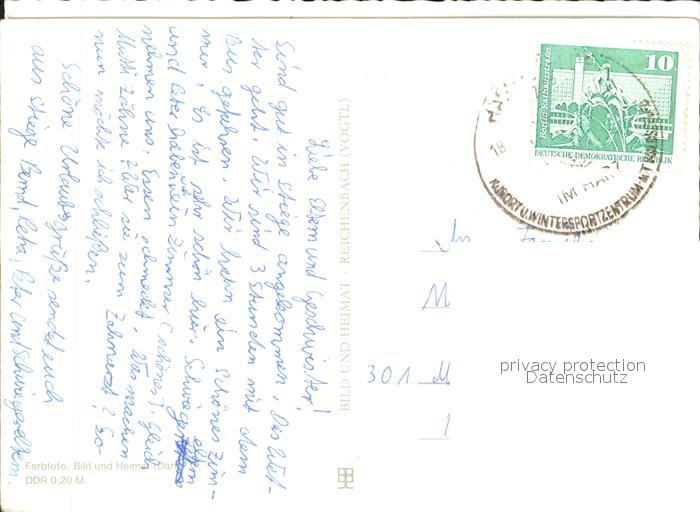 Liebe Eltern und Geschwister!
Sind gut in Stiege angekommen. Das Wet-
ter geht. Wir sind 3 Stunden mit dem
Bus gefahren. Wir haben ein schönes Zim-
mer. Es ist sehr schön hier. Schwiegereltern
und Peter haben ein Zimmer (schönes). Gleich
neben uns. Essen schmeckt. Was machen
Mutti Zähne? War sie zum Zahnarzt? So-
nun möchte ich schließen.
Schöne Urlaubsgrüße sendet euch
aus Stiege Bernd, Petra, Peter und Schwiegereltern.
BILD UND HEIMAT · REICHENBACH (VOGTL)
Farbfoto: Bild und Heimat
DDR 0,20 M
10
Berlin, Rathausstraße
DEUTSCHE DEMOKRATISCHE REPUBLIK
18
IM HARZ
KURORT U. WINTERSPORTZENTRUM
An Familie
M
301 M
privacy protection
Datenschutz